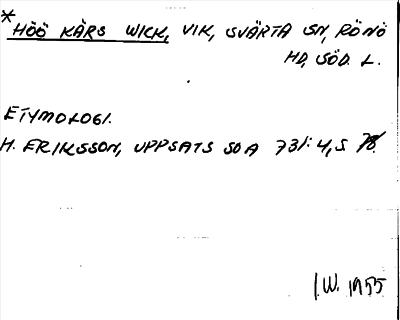 * HÖÖ KÄRS WICK, VIK, SVÄRTA SN, RÖNÖ
HD, SÖD. L.
ETYMOLOGI.
H. ERIKSSON, UPPSATS SOA 731:4, S
I.W. 1955